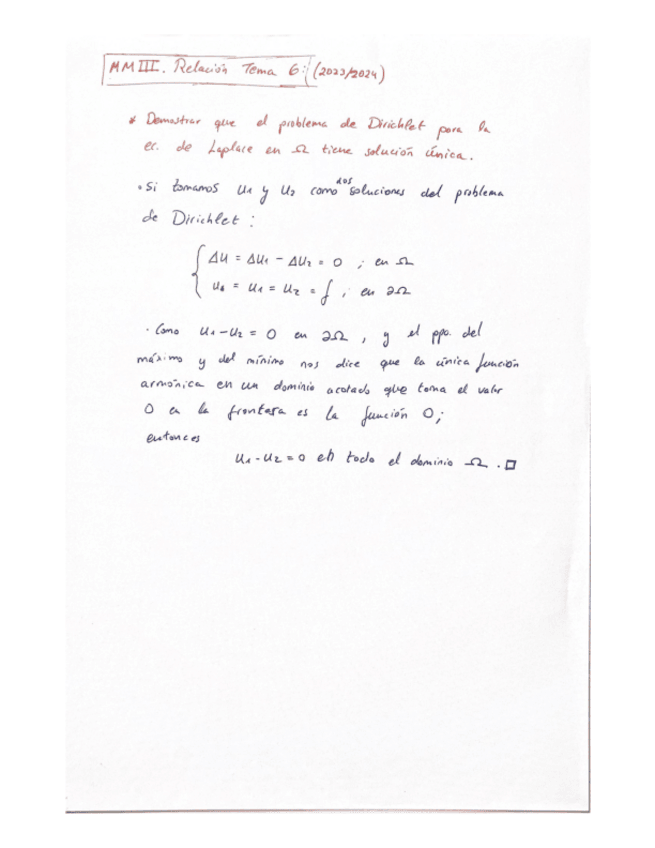 MMIII. Relación Tema 6: (2023/2024)
* Demostrar que el problema de Dirichlet para la
ec. de Laplace en Ω tiene solución única.
• Si tomamos u₁ y u₂ como dos soluciones del problema
de Dirichlet:
Δu = Δu₁ - Δu₂ = 0 ; en Ω
u₀ = u₁ = u₂ = f ; en ∂Ω
· Como u₁-u₂ = 0 en ∂Ω, y el ppo. del
máximo y del mínimo nos dice que la única función
armónica en un dominio acotado que toma el valor
0 en la frontera es la función 0;
entonces
u₁-u₂=0 en todo el dominio Ω. □